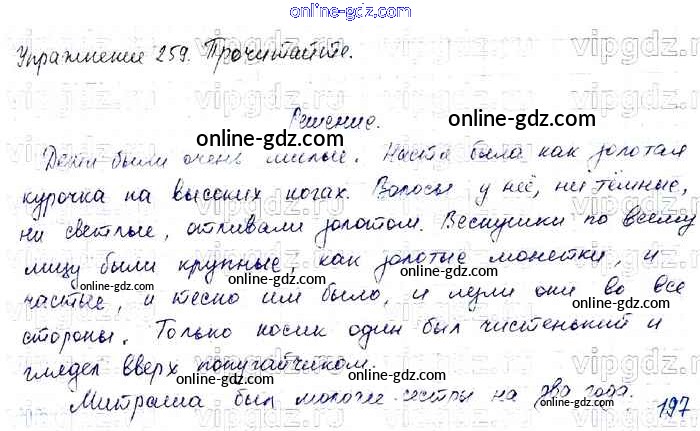 online-gdz.com
Упражнение 259. Прочитайте.
Решение.
online-gdz.com
online-gdz.com
Дети были очень милые. Настя была как золотая
курочка на высоких ногах. Волосы у неё, ни тёмные,
ни светлые, отливали золотом. Веснушки по всему
лицу были крупные, как золотые монетки, и
частые, и тесно им было, и лезли они во все
стороны. Только носик один был чистенький и
глядел вверх попугайчиком.
Митраша был моложе сестры на два года.
197